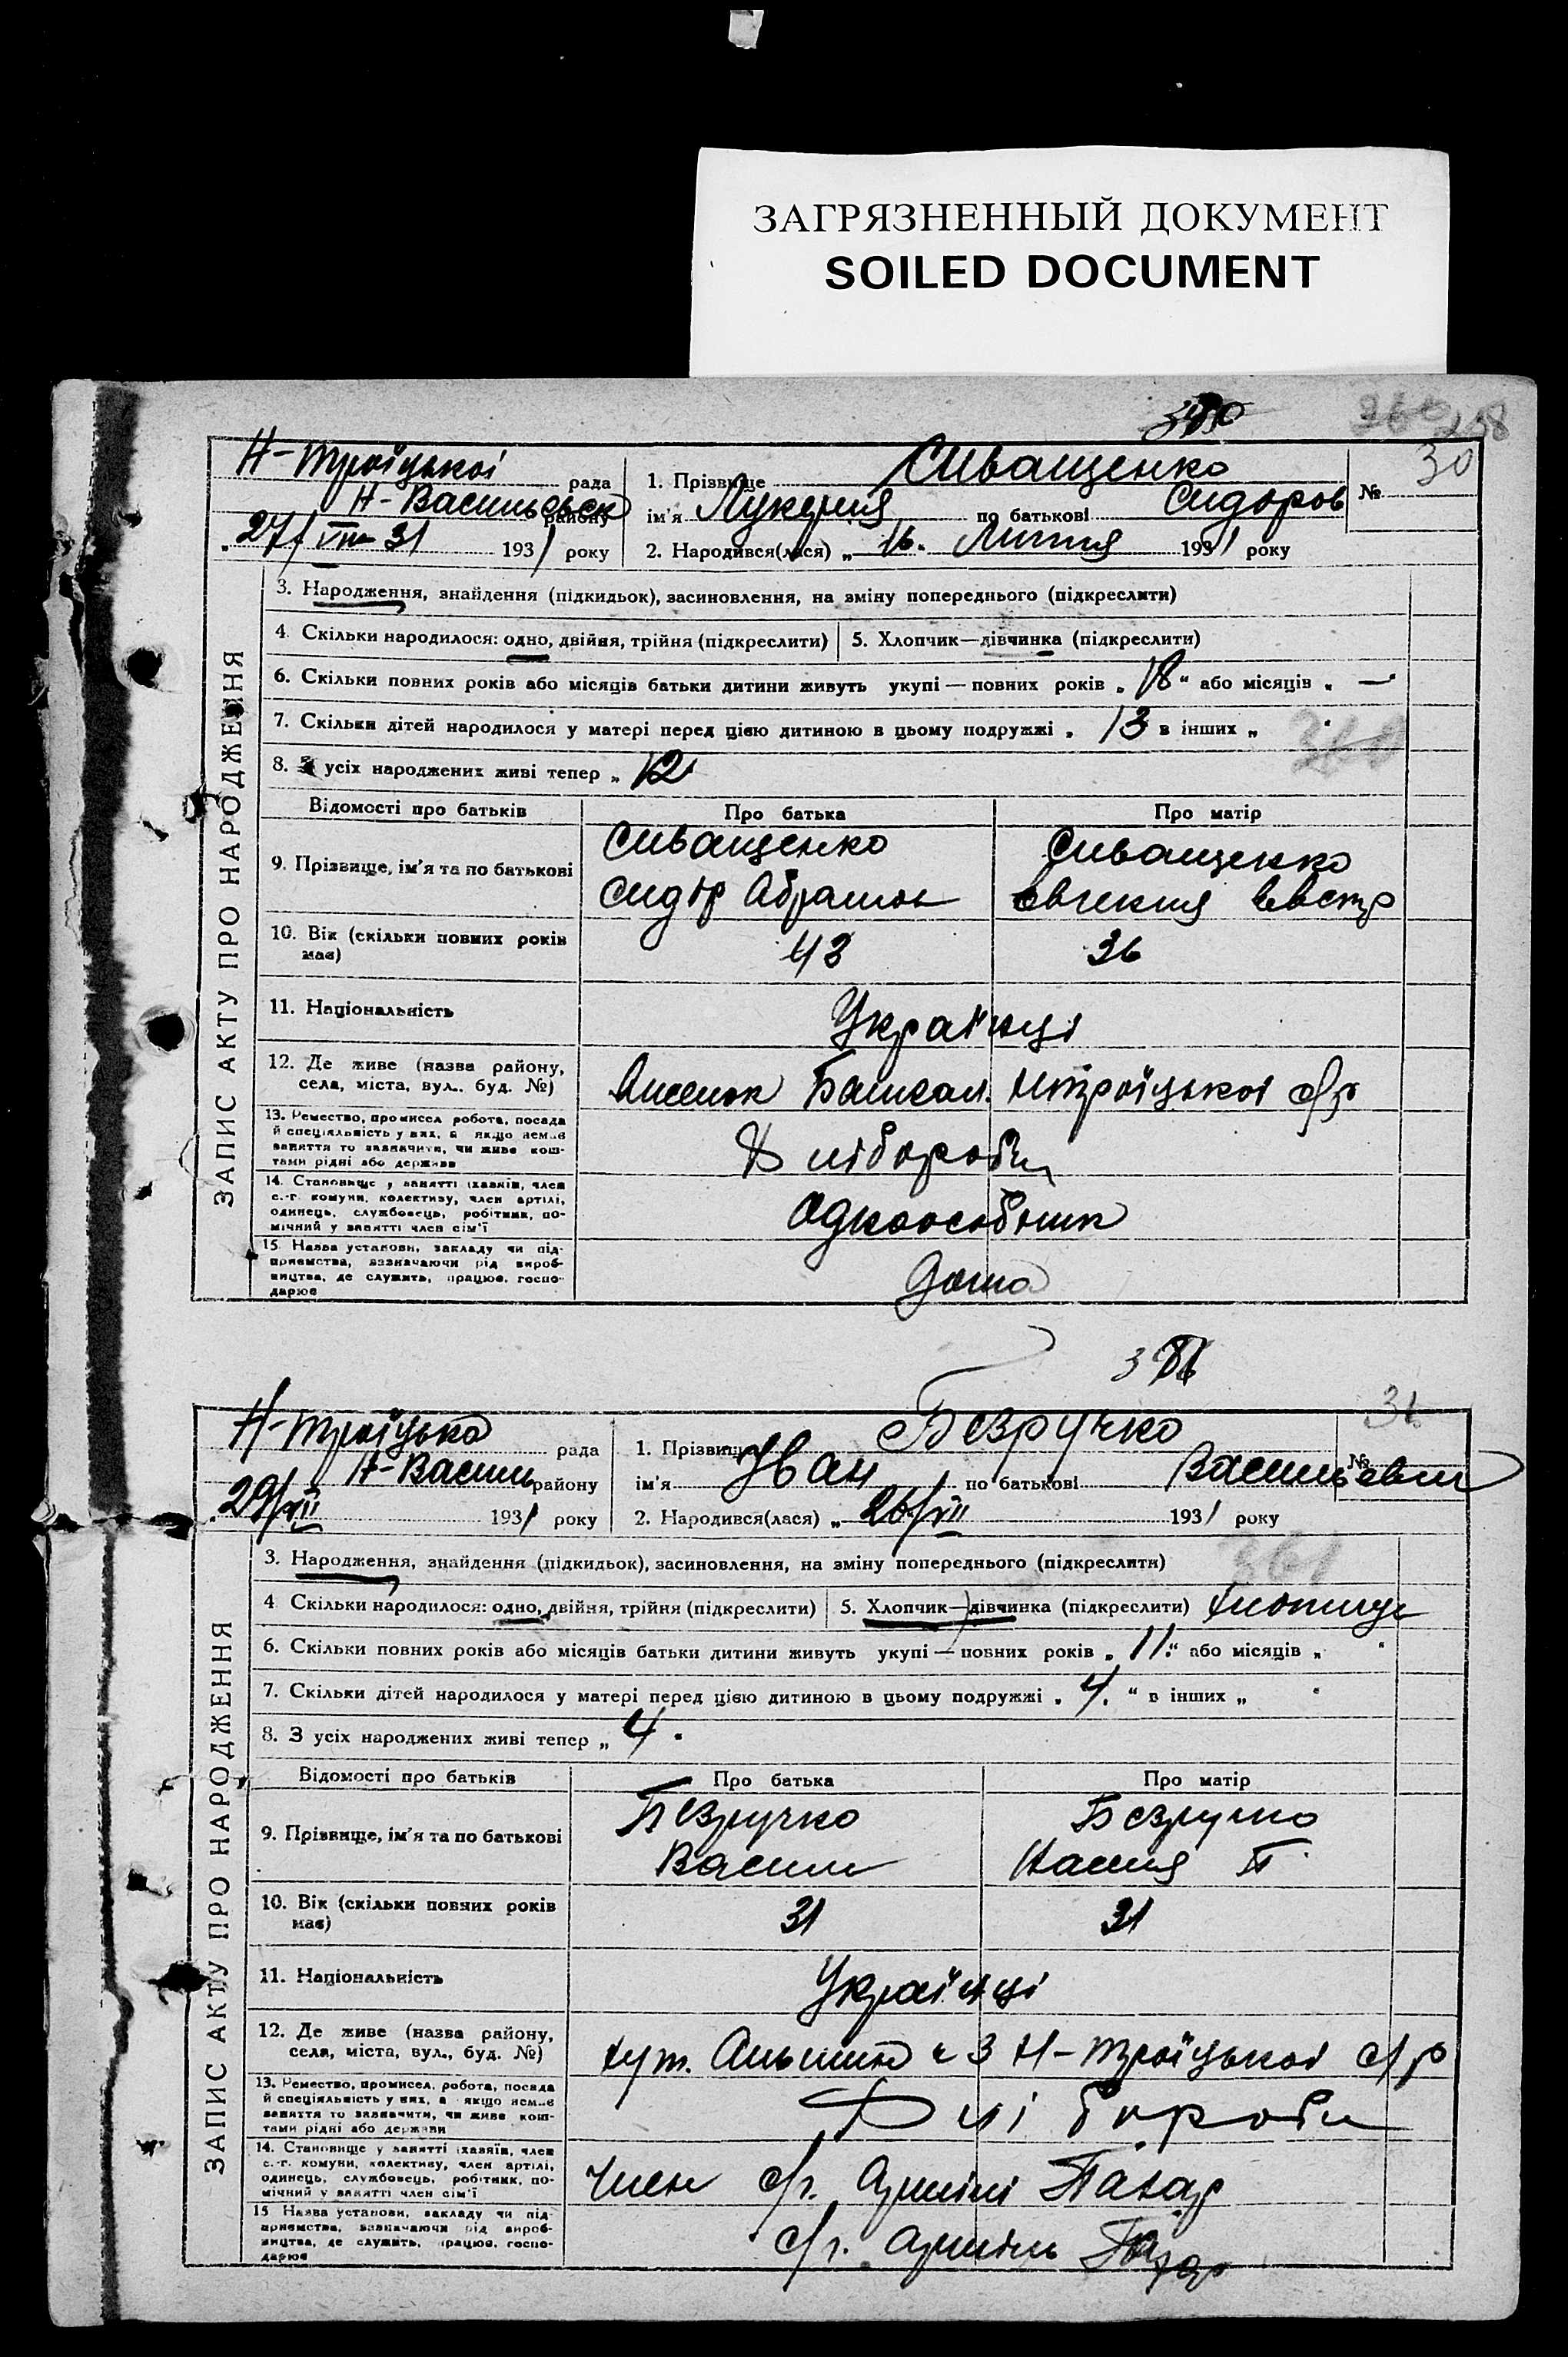 ЗАГРЯЗНЕННЫЙ ДОКУМЕНТ
SOILED DOCUMENT
258
30
Н-Троїцької рада
Н-Васильевск району
„27/VII 31 1931 року
1. Прізвище Сиващенко №
ім'я Лукерия по батькові Сидоров
2. Народився(лася) „16. Липня 1931 року
ЗАПИС АКТУ ПРО НАРОДЖЕННЯ
3. Народження, знайдення (підкидьок), засиновлення, на зміну попереднього (підкреслити)
4. Скільки народилося: одно, двійня, трійня (підкреслити) 5. Хлопчик—дівчинка (підкреслити)
6. Скільки повних років або місяців батьки дитини живуть укупі — повних років „18“ або місяців „ —
7. Скільки дітей народилося у матері перед цією дитиною в цьому подружжі „ 13 в інших „
8. З усіх народжених живі тепер „ 12
Відомості про батьків Про батька Про матір
9. Прізвище, ім'я та по батькові
Сиващенко Сиващенко
Сидір Абрамов Евгения Евстр
10. Вік (скільки повних років має) 43 36
11. Національність Українці
12. Де живе (назва району, села, міста, вул., буд. №)
Нтроїцької с/р
13. Ремество, промисел робота, посада й спеціяльність у них, а якщо немає заняття то зазначити, чи живе коштами рідні або держави
Хліборобы
14. Становище у занятті (хазяїн, член с.-г. комуни, колективу, член артілі, одинець, службовець, робітник, помічний у занятті член сім'ї
Одноособник
15. Назва установи, закладу чи підприємства, зазначаючи рід виробництва, де служить, працює, господарює
Дома
31
Н-Троїцька рада
Н-Василь району
„29/VII 1931 року
1. Прізвище Безручко №
ім'я Іван по батькові Васильевич
2. Народився(лася) „ 26/VII 1931 року
361
ЗАПИС АКТУ ПРО НАРОДЖЕННЯ
3. Народження, знайдення (підкидьок), засиновлення, на зміну попереднього (підкреслити)
4 Скільки народилося: одно, двійня, трійня (підкреслити) 5. Хлопчик—дівчинка (підкреслити)
6. Скільки повних років або місяців батьки дитини живуть укупі — повних років „ 11.“ або місяців „ “
7. Скільки дітей народилося у матері перед цією дитиною в цьому подружжі „ 4. “ в інших „ “
8. З усіх народжених живі тепер „ 4 “
Відомості про батьків Про батька Про матір
9. Прізвище, ім'я та по батькові
Безручко Безручко
Васил П
10. Вік (скільки повних років має) 31 31
11. Національність Українці
12. Де живе (назва району, села, міста, вул., буд. №)
хут. № 3 Н-Троїцької с/р
13. Ремество, промисел, робота, посада й спеціяльність у них, а якщо немає заняття то зазначити, чи живе коштами рідні або держави
Хлібороби
14. Становище у занятті (хазяїн, член с.-г. комуни, колективу, член артілі, одинець, службовець, робітник, помічний у занятті член сім'ї
Член с/г. Артілі Пахар
15 Назва установи, закладу чи підприємства, зазначаючи рід виробництва, де служить, працює, господарює
с/г. артіль Пахар